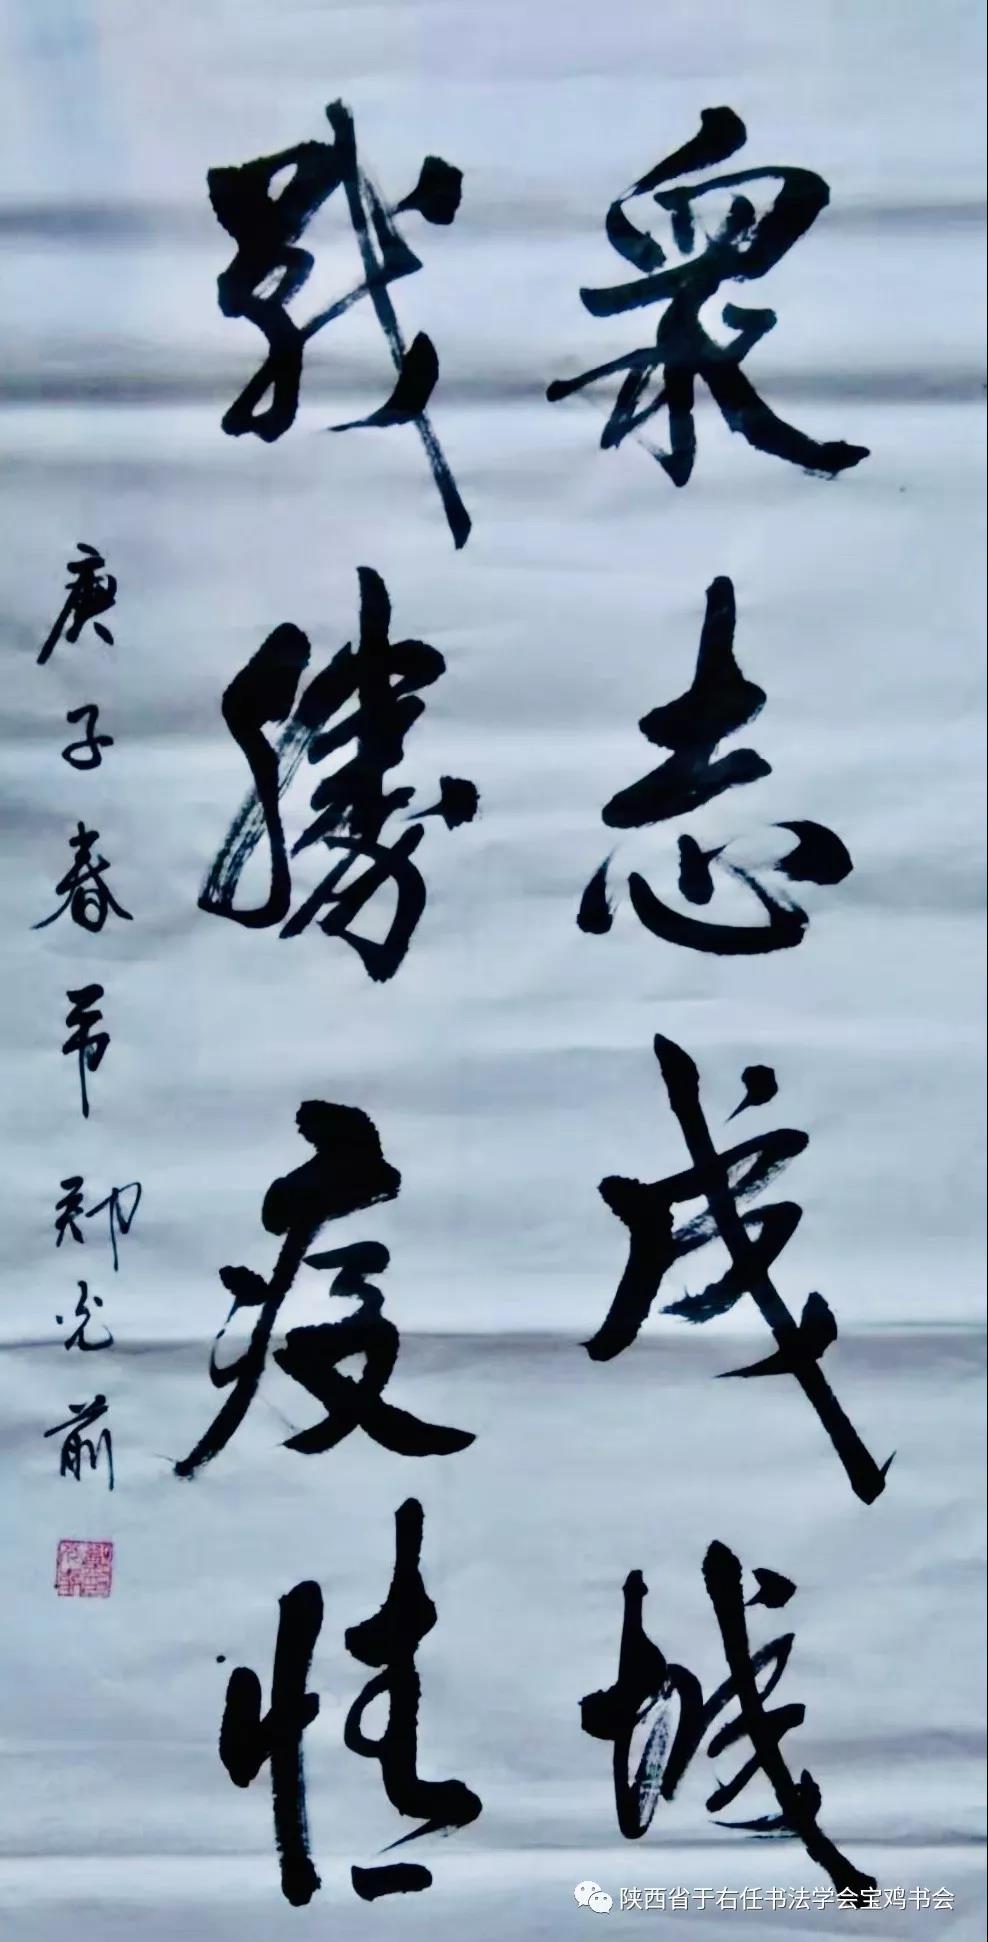 眾志成城
戰勝疫情
庚子春节郑光前
陕西省于右任书法学会宝鸡书会